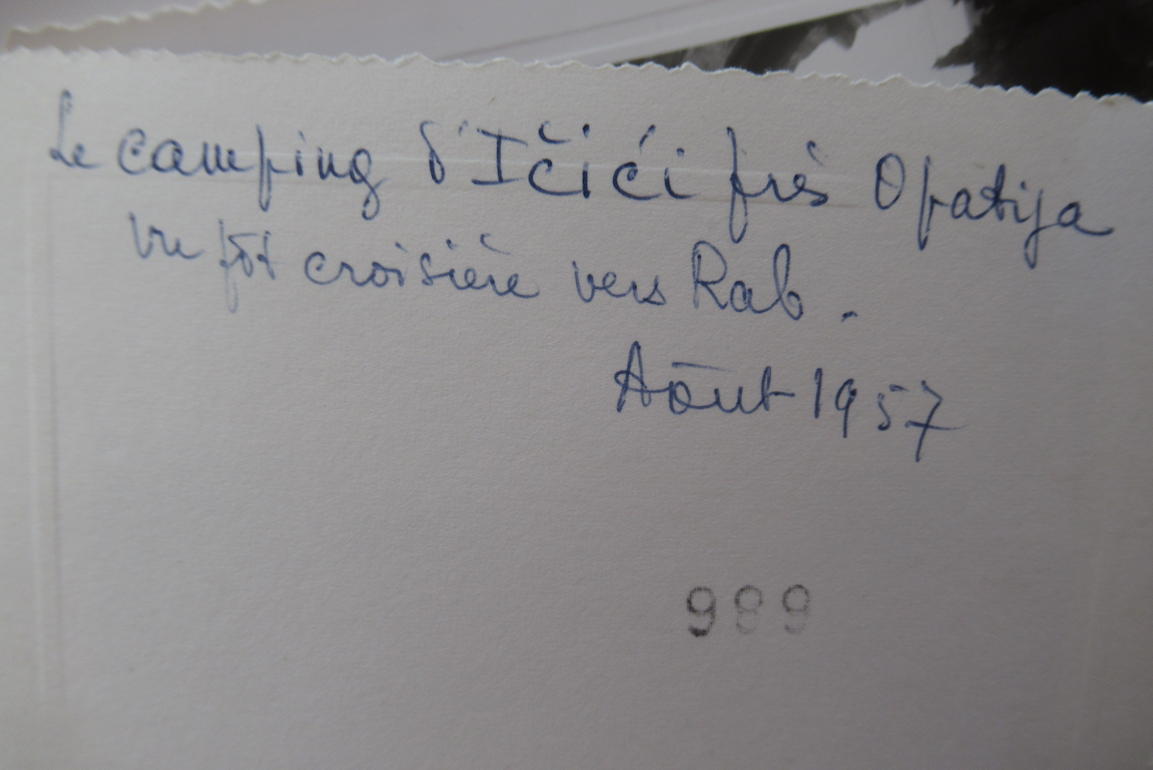 Le camping d'Ičići près Opatija
vu croisière vers Rab.
Août 1957
989